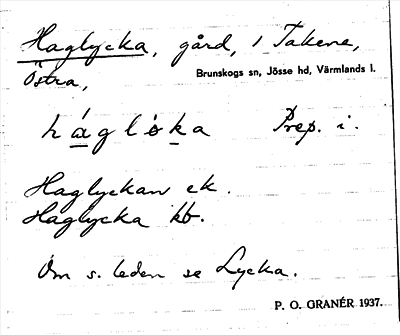 Haglycka, gård, i Takene,
Östra,
Brunskogs sn, Jösse hd, Värmlands l.
háglø̀ka Prep. i.
Haglyckan ek.
Haglycka kb.
Om s. leden se Lycka.
P. O. GRANÉR 1937.